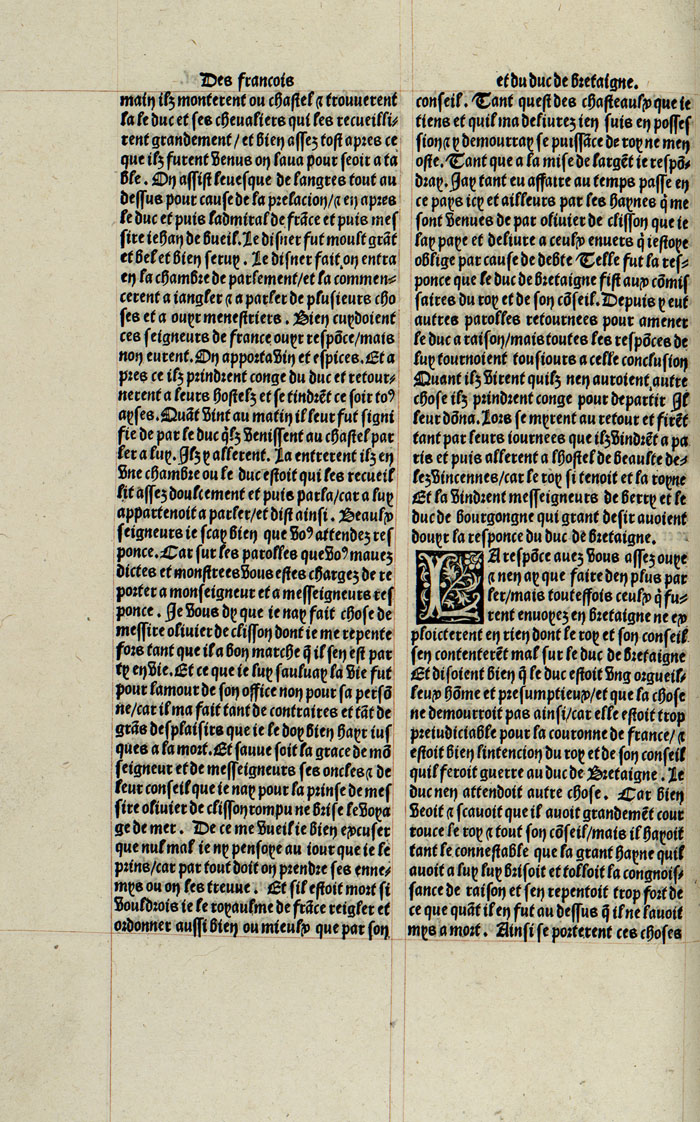 Des francois
main ilz monterent ou chastel ⁊ trouuerent
la le duc et ses cheualiers qui les recueilli-
rent grandement / et bien assez tost apres ce
que ilz furent venus on laua pour seoir a ta
ble. On assist leuesque de langres tout au
dessus pour cause de la prelacion/⁊ en apres
le duc et puis ladmiral de frāce et puis mes
sire iehan de bueil. Le disner fut moult grāt
et bel et bien seruy. Le disner fait on entra
en la chambre de parlement/et la commen-
cerent a iangler ⁊ a parler de plusieurs cho
ses et a ouyr menestriers. Bien cuydoient
ces seigneurs de france ouyr respōce/mais
non eurent. On apporta vin et espices. Et a
pres ce ilz prindrent conge du duc et retour-
nerent a leurs hostelz et se tindrēt ce soir toꝰ
ayses. Quāt vint au matin il leur fut signi
fie de par le duc q̄lz venissent au chastel par
ler a luy. Ilz y allerent. La entrerent ilz en
vne chambre ou le duc estoit qui les recueil
lit assez doulcement et puis parla/car a luy
appartenoit a parler/et dist ainsi. Beaulx
seigneurs ie scay bien que voꝰ attendez res
ponce. Car sur les parolles que voꝰ mauez
dictes et monstrees vous estes chargez de re
porter a monseigneur et a messeigneurs res
ponce. Je vous dy que ie nay fait chose de
messire oliuier de clisson dont ie me repente
fors tant que il a bon marche q̄ il sen est par
ty en vie. Et ce que ie luy sauluay la vie fut
pour lamour de son office non pour sa persō
ne/car il ma fait tant de contraires et tāt de
grās desplaisirs que ie le doy bien hayr ius
ques a la mort. Et sauue soit la grace de mō
seigneur et de messeigneurs ses oncles ⁊ de
leur conseil que ie nay pour la prinse de mes
sire oliuier de clisson rompu ne brise le voya
ge de mer. De ce me vueil ie bien excuser
que nul mal ie ny pensoye au iour que ie le
prins/car par tout doit on prendre ses enne-
mys ou on les treuue. Et sil estoit mort si
vouldrois ie le royaulme de frāce reigler et
ordonner aussi bien ou mieulx que par son
et du duc de bretaigne.
conseil. Tant quest des chasteaulx que ie
tiens et quil ma deliurez ien suis en posses
sion ⁊ y demourray se puissāce de roy ne men
oste. Tant que a la mise de largēt ie respō-
dray. Jay tant eu affaire au temps passe en
ce pays icy et ailleurs par les haynes q̄ me
sont venues de par oliuier de clisson que ie
lay paye et deliure a ceulx enuers q̄ iestoye
oblige par cause de debte Telle fut la res-
ponce que le duc de bretaigne fist aux cōmis
saires du roy et de son cōseil. Depuis y eut
autres parolles retournees pour amener
le duc a raison/mais toutes les respōces de
luy tournoient tousiours a celle conclusion
Quant ilz virent quilz nen auroient autre
chose ilz prindrent conge pour departir Il
leur dōna. Lors se myrent au retour et firēt
tant par leurs iournees que ilz vindrēt a pa
ris et puis allerent a lhostel de beaulte de-
lez vincennes/car le roy si tenoit et la royne
Et la vindrent messeigneurs de berry et le
duc de bourgongne qui grant desir auoient
douyr la responce du duc de bretaigne.
LA respōce auez vous assez ouye
⁊ nen ay que faire den plus par
ler/mais touteffois ceulx q̄ fu-
rent enuoyez en bretaigne ne ex
ploicterent en rien dont le roy et son conseil
sen contenterēt mal sur le duc de bretaigne
Et disoient bien q̄ le duc estoit vng orgueil-
leux hōme et presumptieux/et que la chose
ne demourroit pas ainsi/car elle estoit trop
preiudiciable pour la couronne de france/ ⁊
estoit bien lintencion du roy et de son conseil
quil feroit guerre au duc de Bretaigne. Le
duc nen attendoit autre chose. Car bien
veoit ⁊ scauoit que il auoit grandemēt cour
rouce le roy ⁊ tout son cōseil/mais il hayoit
tant le connestable que la grant hayne quil
auoit a luy luy brisoit et tolloit la congnois-
sance de raison et sen repentoit trop fort de
ce que quāt il en fut au dessus q̄ il ne lauoit
mys a mort. Ainsi se porterent ces choses